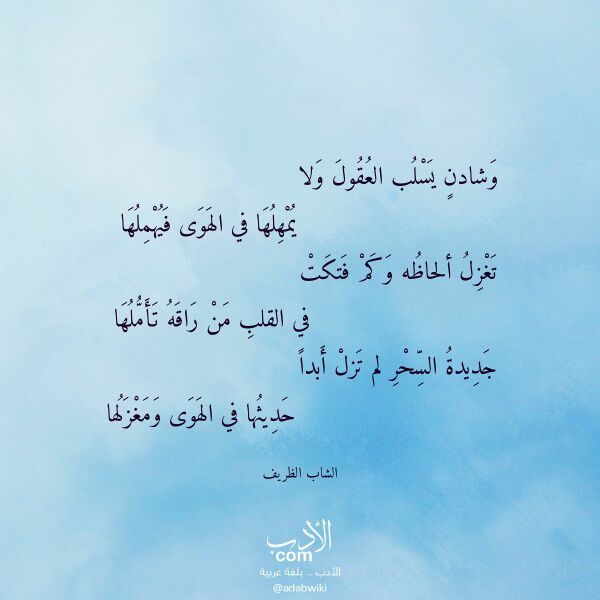 وَشادنٍ يَسْلُب العُقُولَ وَلا
يُمْهِلُهَا في الهَوَى فَيُهْمِلُهَا
تَغْزِلُ ألحاظُه وَكَمْ فَتَكَتْ
في القلبِ مَنْ رَاقَهُ تَأَمُّلُهَا
جَدِيدةُ السِّحْرِ لم تَزلْ أَبداً
حَدِيثُها في الهَوَى وَمَغْزَلُها
الشاب الظريف
الأدب
com
الأدب .. بلغة عربية
@adabwiki